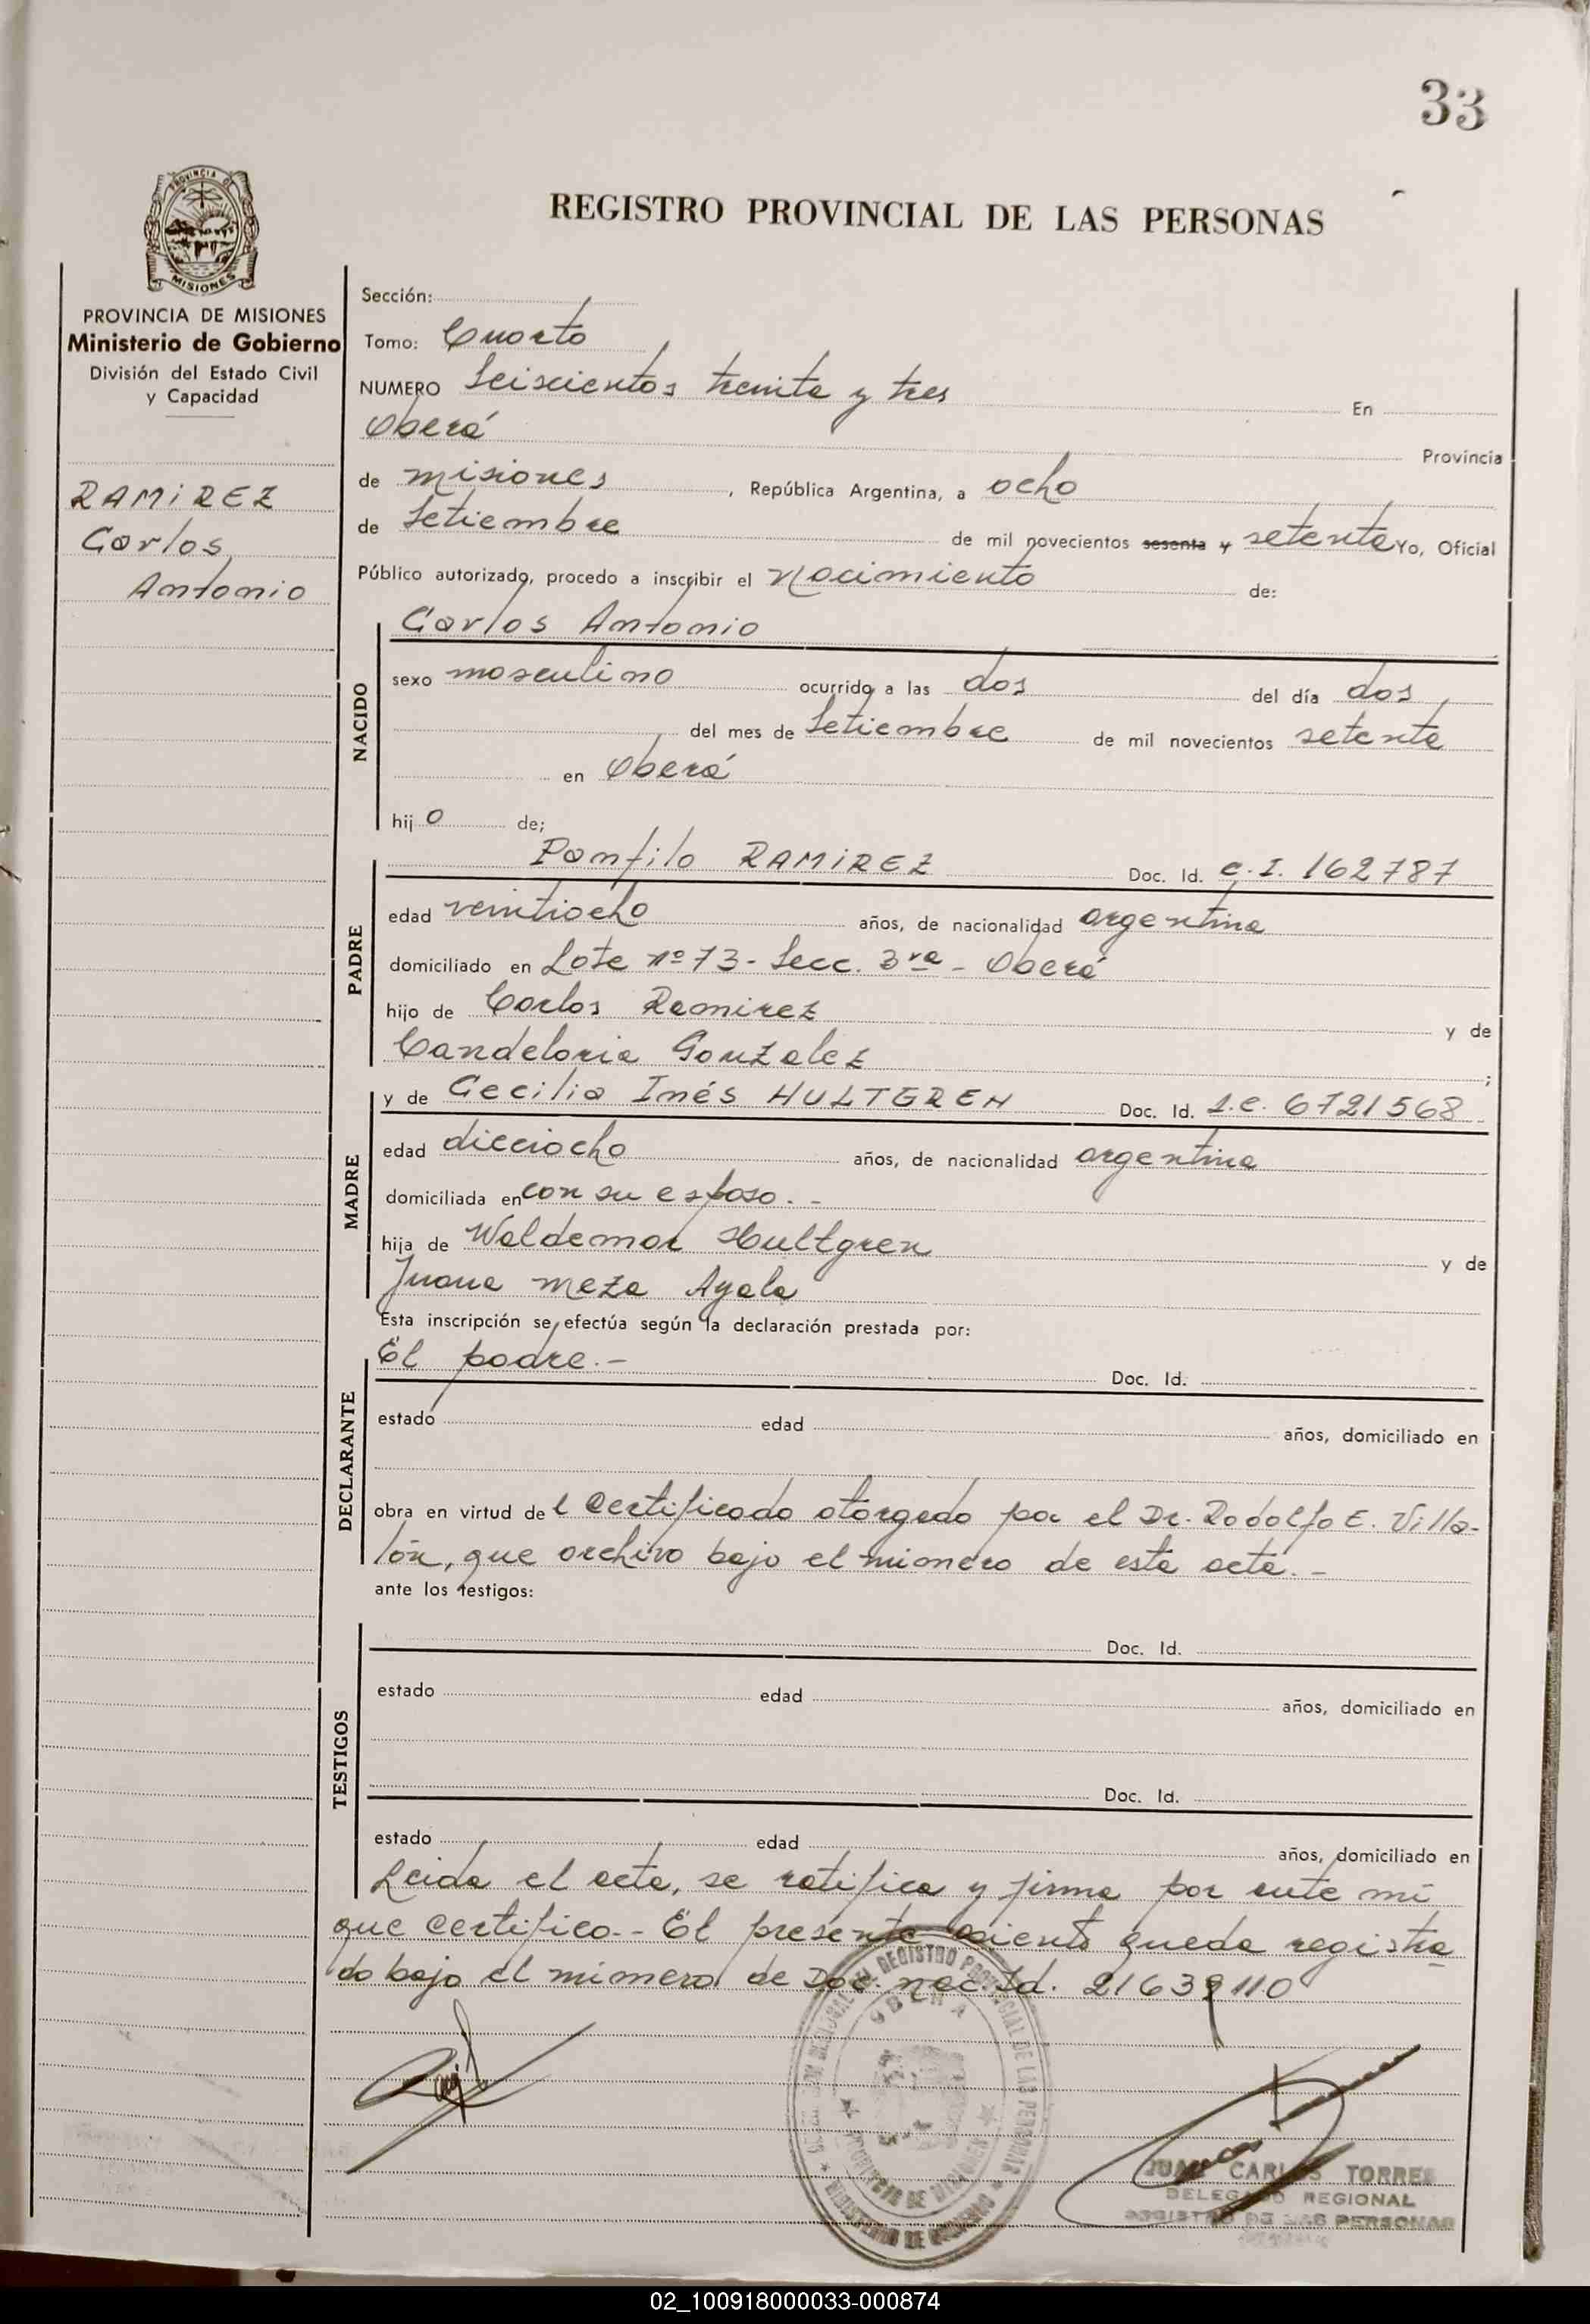 33
PROVINCIA DE
MISIONES
REGISTRO PROVINCIAL DE LAS PERSONAS
PROVINCIA DE MISIONES
Ministerio de Gobierno
División del Estado Civil
y Capacidad
RAMIREZ
Carlos
Antonio
Sección:
Tomo: Cuarto
NUMERO Seiscientos treinta y tres En
Oberá Provincia
de misiones, República Argentina, a ocho
de Setiembre de mil novecientos sesenta y setenta Yo, Oficial
Público autorizado, procedo a inscribir el Nacimiento de:
NACIDO
Carlos Antonio
sexo masculino ocurrido a las dos del día dos
del mes de Setiembre de mil novecientos setenta
en Oberá
hijo de;
PADRE
Panfilo RAMIREZ Doc. Id. C.I. 162787
edad veintiocho años, de nacionalidad argentina
domiciliado en Lote nº 73 - Secc. 3ra - Oberá
hijo de Carlos Ramirez y de
Candelaria Gonzalez ;
MADRE
y de Cecilia Inés HULTGREN Doc. Id. L.C. 6721568
edad dieciocho años, de nacionalidad argentina
domiciliada en con su esposo. -
hija de Waldemar Hultgren y de
Juana Meza Ayala
Esta inscripción se efectúa según la declaración prestada por:
DECLARANTE
El padre. - Doc. Id.
estado edad años, domiciliado en
obra en virtud del Certificado otorgado por el Dr. Rodolfo E. Villa-
lón, que archivo bajo el número de esta acta. -
ante los testigos:
TESTIGOS
Doc. Id.
estado edad años, domiciliado en
Doc. Id.
estado edad años, domiciliado en
Leida el acta, se ratifica y firma por ante mí
que certifico. - El presente asiento queda registra
do bajo el número de Doc. nac. Id. 21639110
REGISTRO PROVINCIAL DE LAS PERSONAS
OBERA
PROVINCIA DE MISIONES
MINISTERIO DE GOBIERNO
JUAN CARLOS TORRES
DELEGADO REGIONAL
REGISTRO DE LAS PERSONAS
02_100918000033-000874